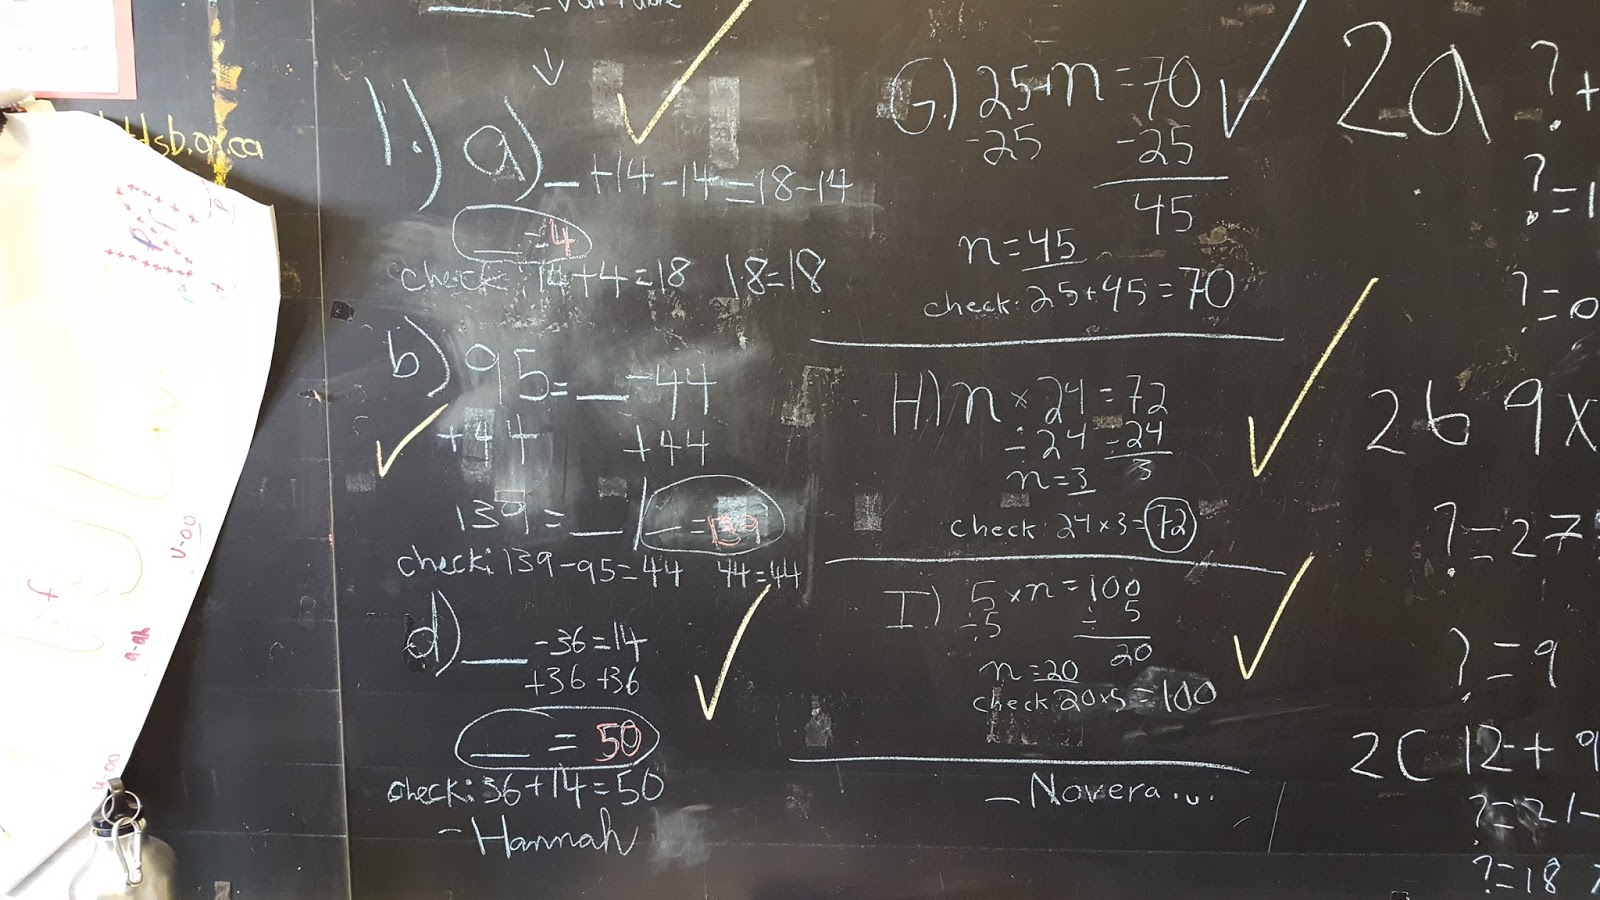 variable
1.) a) _ +14-14=18-14
_ =4
check: 14+4=18 18=18
b) 95=_ -44
+44 +44
139=_ / _ =139
check: 139-95=44 44=44
d) _ -36=14
+36 +36
_ = 50
check: 36+14=50
- Hannah
G.) 25+n=70
-25 -25
45
n=45
check: 25+45=70
H.) n × 24 = 72
÷ 24 ÷ 24
n=3 3
check: 24 × 3 = 72
I) 5 × n = 100
÷5 ÷ 5
20
n=20
check: 20×5=100
- Novera
2a ?+
?=1
?=0
2b 9x
?=27
?=9
2c 12+9
?=21-
?=18
a-ah